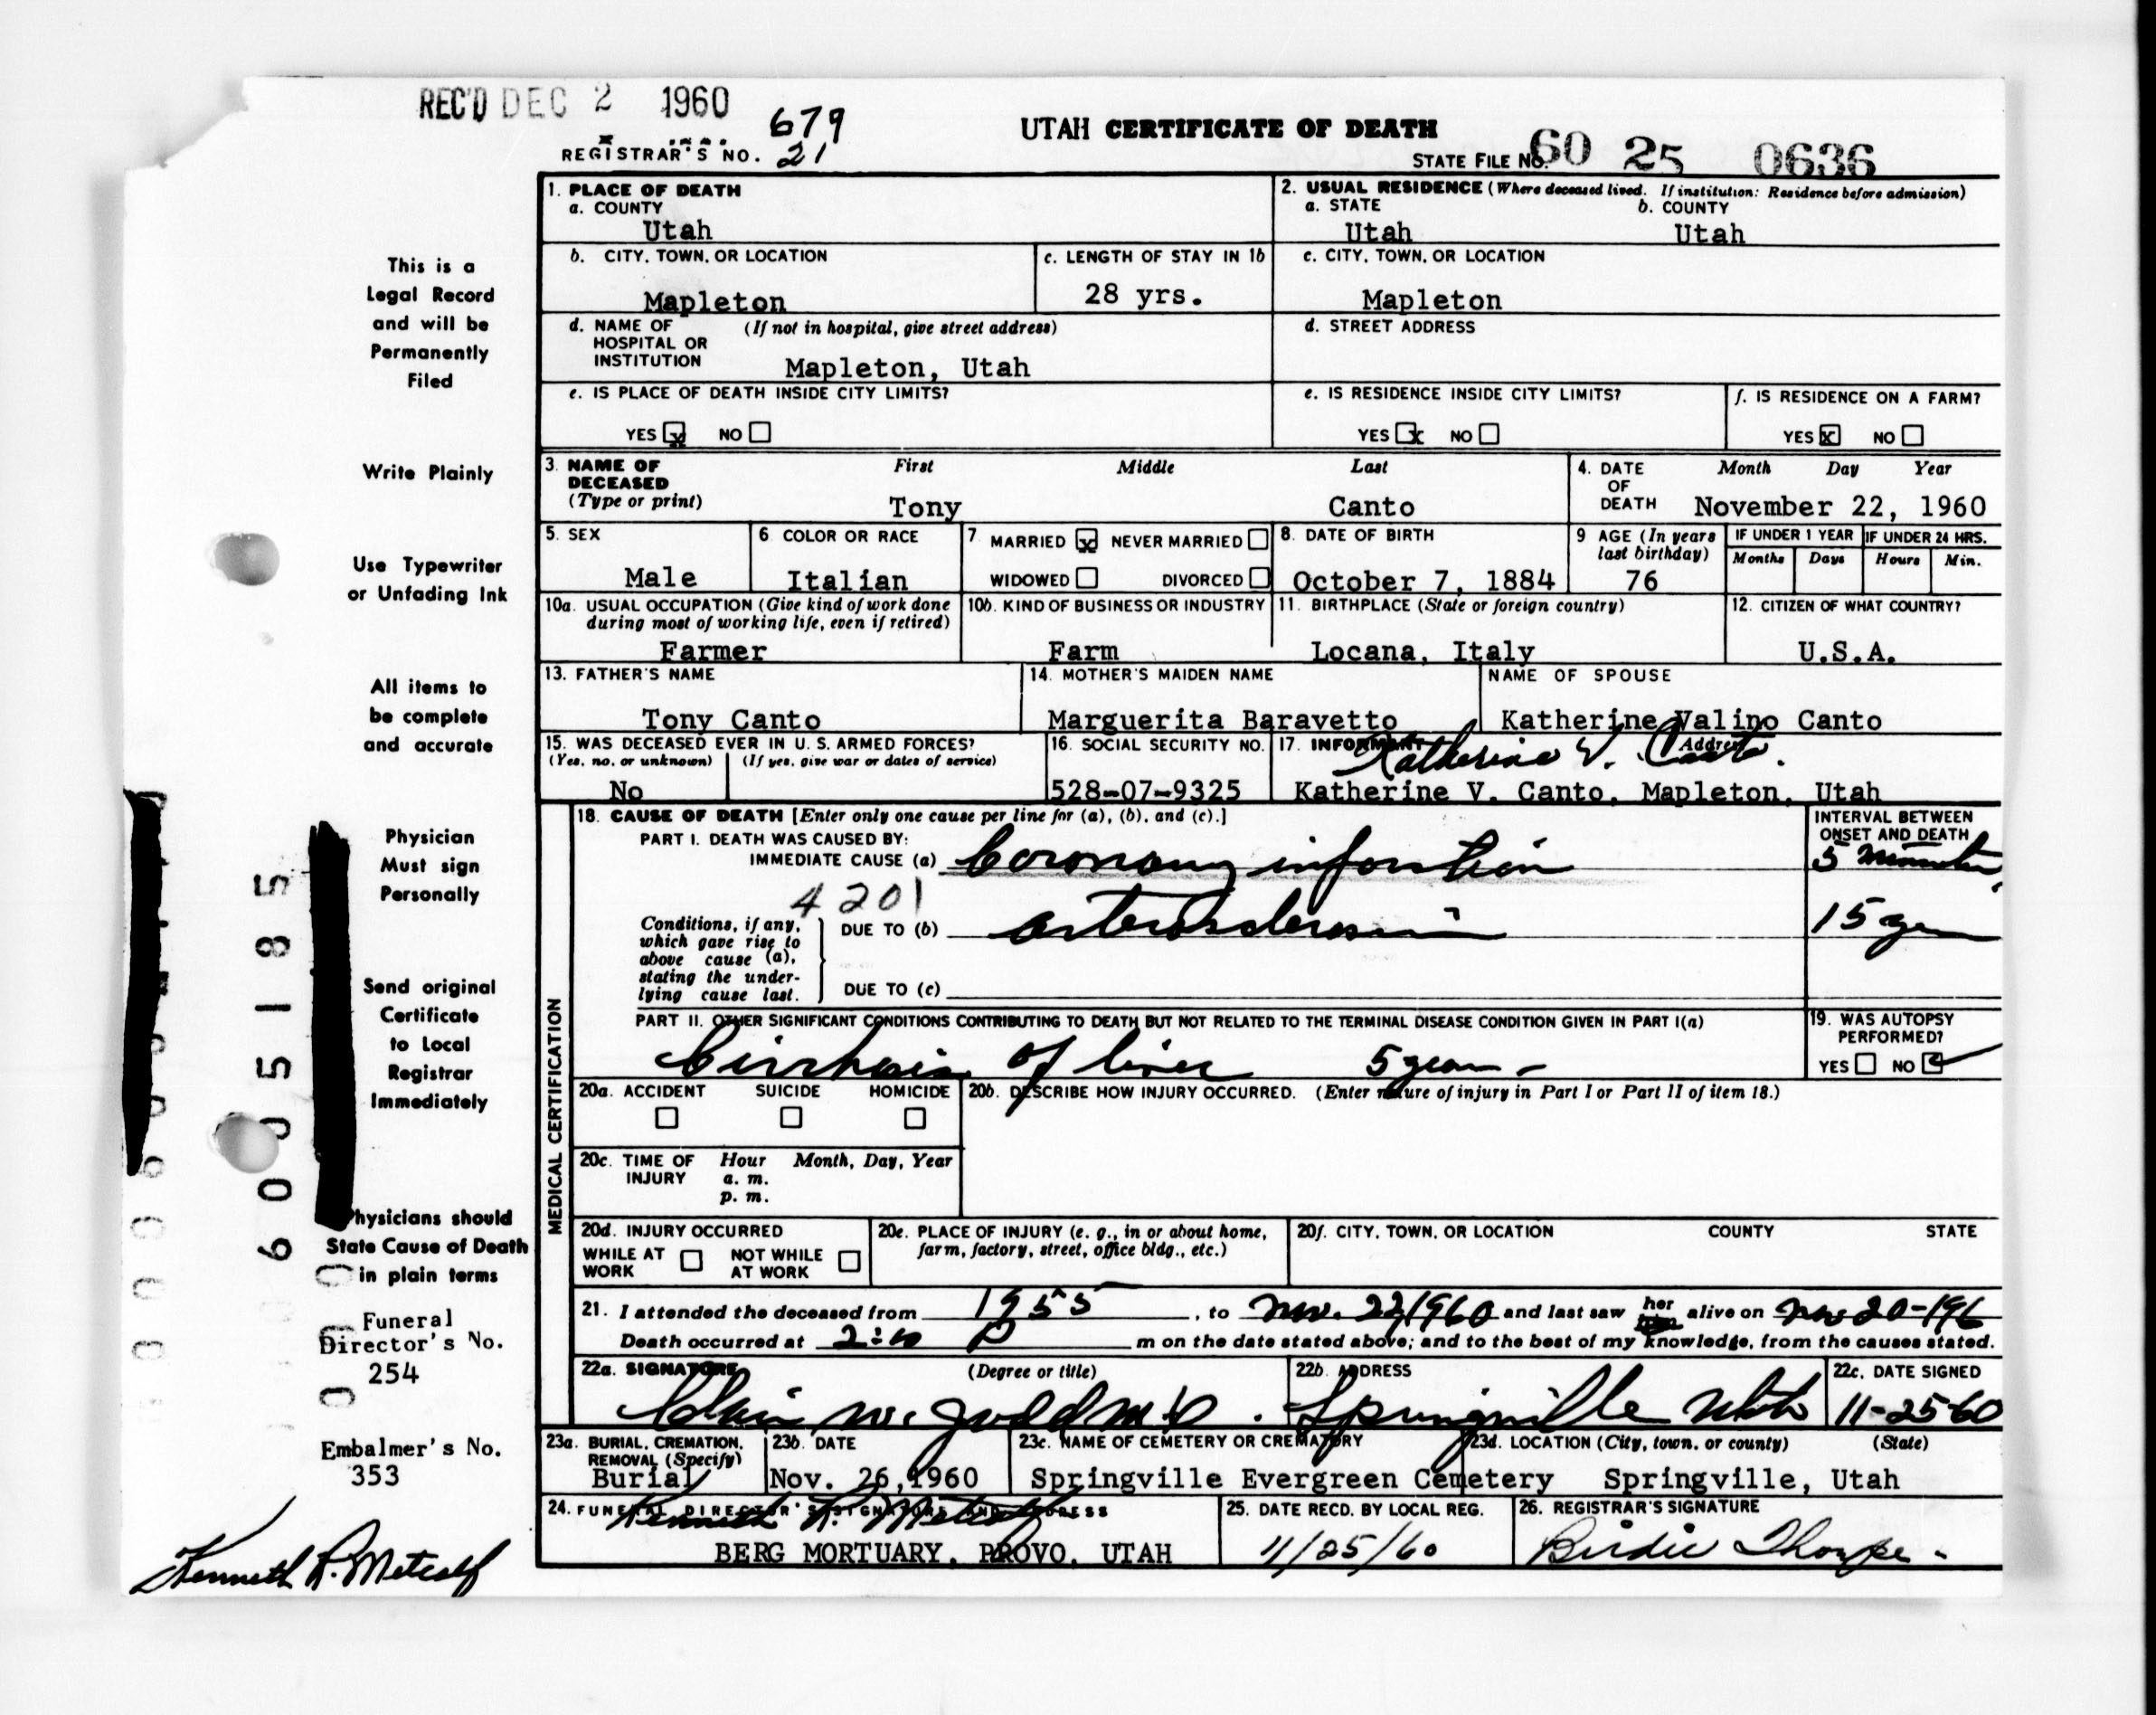 REC'D DEC 2 1960
679
REGISTRAR'S NO. 21
UTAH CERTIFICATE OF DEATH
STATE FILE NO. 60 25 0636
This is a
Legal Record
and will be
Permanently
Filed
Write Plainly
Use Typewriter
or Unfading Ink
All items to
be complete
and accurate
Physician
Must sign
Personally
Send original
Certificate
to Local
Registrar
Immediately
hysicians should
State Cause of Death
in plain terms
Funeral
Director's No.
254
Embalmer's No.
353
Kenneth R. Metcalf
1. PLACE OF DEATH
a. COUNTY
Utah
2. USUAL RESIDENCE (Where deceased lived. If institution: Residence before admission)
a. STATE b. COUNTY
Utah Utah
b. CITY, TOWN, OR LOCATION
Mapleton
c. LENGTH OF STAY IN 1b
28 yrs.
c. CITY, TOWN, OR LOCATION
Mapleton
d. NAME OF (If not in hospital, give street address)
HOSPITAL OR
INSTITUTION
Mapleton, Utah
d. STREET ADDRESS
e. IS PLACE OF DEATH INSIDE CITY LIMITS?
YES x NO
e. IS RESIDENCE INSIDE CITY LIMITS?
YES x NO
f. IS RESIDENCE ON A FARM?
YES x NO
3. NAME OF First Middle Last
DECEASED
(Type or print)
Tony Canto
4. DATE Month Day Year
OF
DEATH November 22, 1960
5. SEX
Male
6 COLOR OR RACE
Italian
7 MARRIED x NEVER MARRIED
WIDOWED DIVORCED
8. DATE OF BIRTH
October 7, 1884
9 AGE (In years
last birthday)
76
IF UNDER 1 YEAR IF UNDER 24 HRS.
Months Days Hours Min.
10a. USUAL OCCUPATION (Give kind of work done
during most of working life, even if retired)
Farmer
10b. KIND OF BUSINESS OR INDUSTRY
Farm
11. BIRTHPLACE (State or foreign country)
Locana, Italy
12. CITIZEN OF WHAT COUNTRY?
U.S.A.
13. FATHER'S NAME
Tony Canto
14. MOTHER'S MAIDEN NAME
Marguerita Baravetto
NAME OF SPOUSE
Katherine Valino Canto
15. WAS DECEASED EVER IN U. S. ARMED FORCES?
(Yes, no, or unknown) (If yes, give war or dates of service)
No
16. SOCIAL SECURITY NO.
528-07-9325
17. INFORMANT Address
Katherine V. Canto.
Katherine V. Canto, Mapleton, Utah
MEDICAL CERTIFICATION
18. CAUSE OF DEATH [Enter only one cause per line for (a), (b), and (c).]
PART I. DEATH WAS CAUSED BY:
IMMEDIATE CAUSE (a) Coronary infarction
INTERVAL BETWEEN
ONSET AND DEATH
5 Minutes
4201
Conditions, if any,
which gave rise to
above cause (a),
stating the under-
lying cause last.
DUE TO (b) arteriosclerosis
15 yrs
DUE TO (c)
PART II. OTHER SIGNIFICANT CONDITIONS CONTRIBUTING TO DEATH BUT NOT RELATED TO THE TERMINAL DISEASE CONDITION GIVEN IN PART I(a)
Cirrhosis of liver 5 years -
19. WAS AUTOPSY
PERFORMED?
YES NO
20a. ACCIDENT SUICIDE HOMICIDE
20b. DESCRIBE HOW INJURY OCCURRED. (Enter nature of injury in Part I or Part II of item 18.)
20c. TIME OF Hour Month, Day, Year
INJURY a. m.
p. m.
20d. INJURY OCCURRED
WHILE AT NOT WHILE
WORK AT WORK
20e. PLACE OF INJURY (e. g., in or about home,
farm, factory, street, office bldg., etc.)
20f. CITY, TOWN, OR LOCATION COUNTY STATE
21. I attended the deceased from 1955, to Nov. 22, 1960 and last saw her him alive on Nov 20-196
Death occurred at P m on the date stated above; and to the best of my knowledge, from the causes stated.
22a. SIGNATURE (Degree or title)
W. Judd M D.
22b. ADDRESS
Springville Utah
22c. DATE SIGNED
11-25-60
23a. BURIAL, CREMATION,
REMOVAL (Specify)
Burial
23b. DATE
Nov. 26, 1960
23c. NAME OF CEMETERY OR CREMATORY
Springville Evergreen Cemetery
23d. LOCATION (City, town, or county) (State)
Springville, Utah
24. FUNERAL DIRECTOR'S SIGNATURE AND ADDRESS
Kenneth R. Metcalf
BERG MORTUARY, PROVO, UTAH
25. DATE RECD. BY LOCAL REG.
11/25/60
26. REGISTRAR'S SIGNATURE
Birdie Thorpe.
6005185